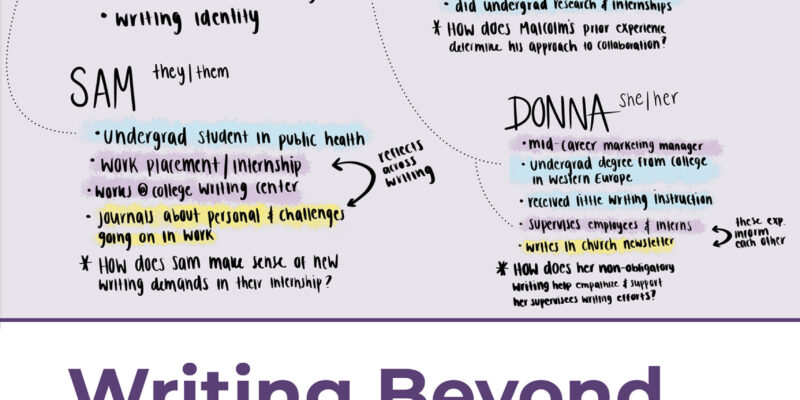 • writing identity
• did undergrad research & internships
* How does Malcolm's prior experience
determine his approach to collaboration?
SAM they/them
• undergrad student in public health
• work placement/internship
• works @ college writing center
• journals about personal & challenges
going on in work
reflects
across
writing
* How does Sam make sense of new
writing demands in their internship?
DONNA she/her
• mid-career marketing manager
• undergrad degree from college
in Western Europe
• received little writing instruction
• supervises employees & interns
• writes in church newsletter
these exp.
inform
each other
* How does her non-obligatory
writing help empathize & support
her supervisees writing efforts?
Writing Beyond